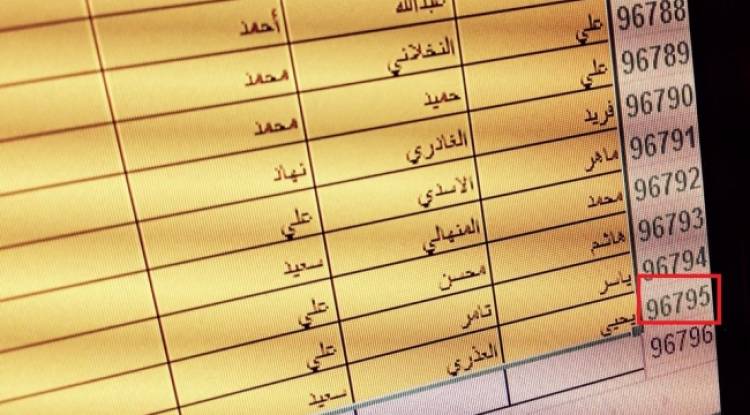 عبدالله أحمد
96788 علي النخلاني محمد
96789 علي حميد محمد
96790 فريد الغادري نهاد
96791 ماهر الاسدي علي
96792 محمد المنهالي سعيد
96793 هاشم محسن علي
96794 ياسر تامر علي
96795 يحيى العذري سعيد
96796